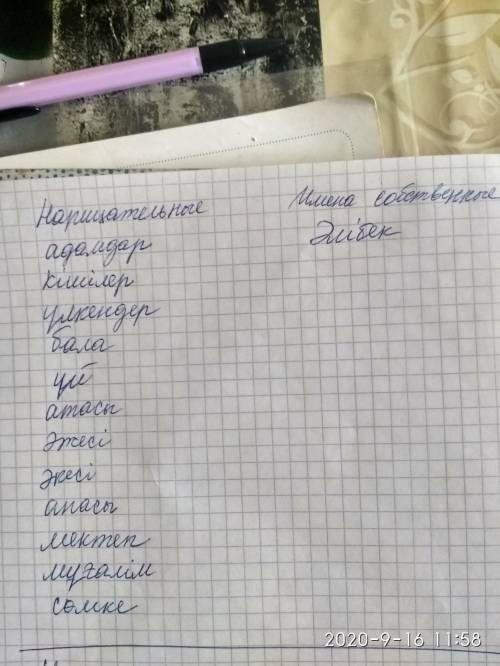 Нарицательные
Имена собственные
адамдар
Әлібек
кішілер
үлкендер
бала
үй
атасы
әжесі
әкесі
анасы
мектеп
мұғалім
сөмке
2020-9-16 11:58